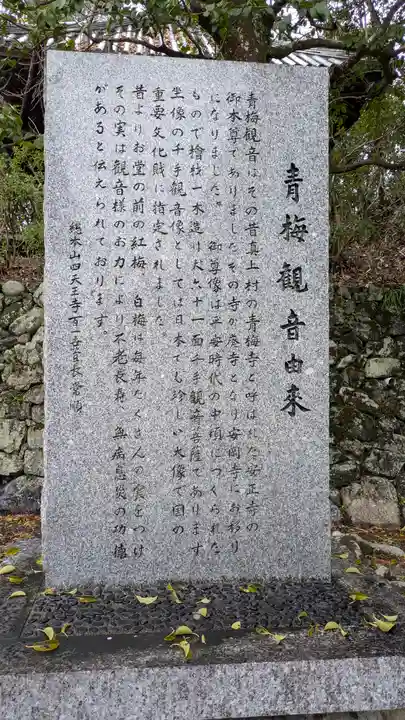 青梅観音由来
青梅観音はその昔真上村の青梅寺と呼ばれた安正寺の
御本尊でありましたその寺が廃寺となり安岡寺におわり
になりました。御尊像は平安時代の中頃につくられた
もので檜材一木造け丈六十一面千手観音菩薩であります
坐像の千手観音像としては日本でも珍しい大像で国の
重要文化財に指定されました。
昔よりお堂の前の紅梅、白梅は毎年たくさんの実をつけ
その実は観音様のお力により不老長寿、無病息災の功徳
があると伝えられております。
総本山四天王寺百一吉貫長常順